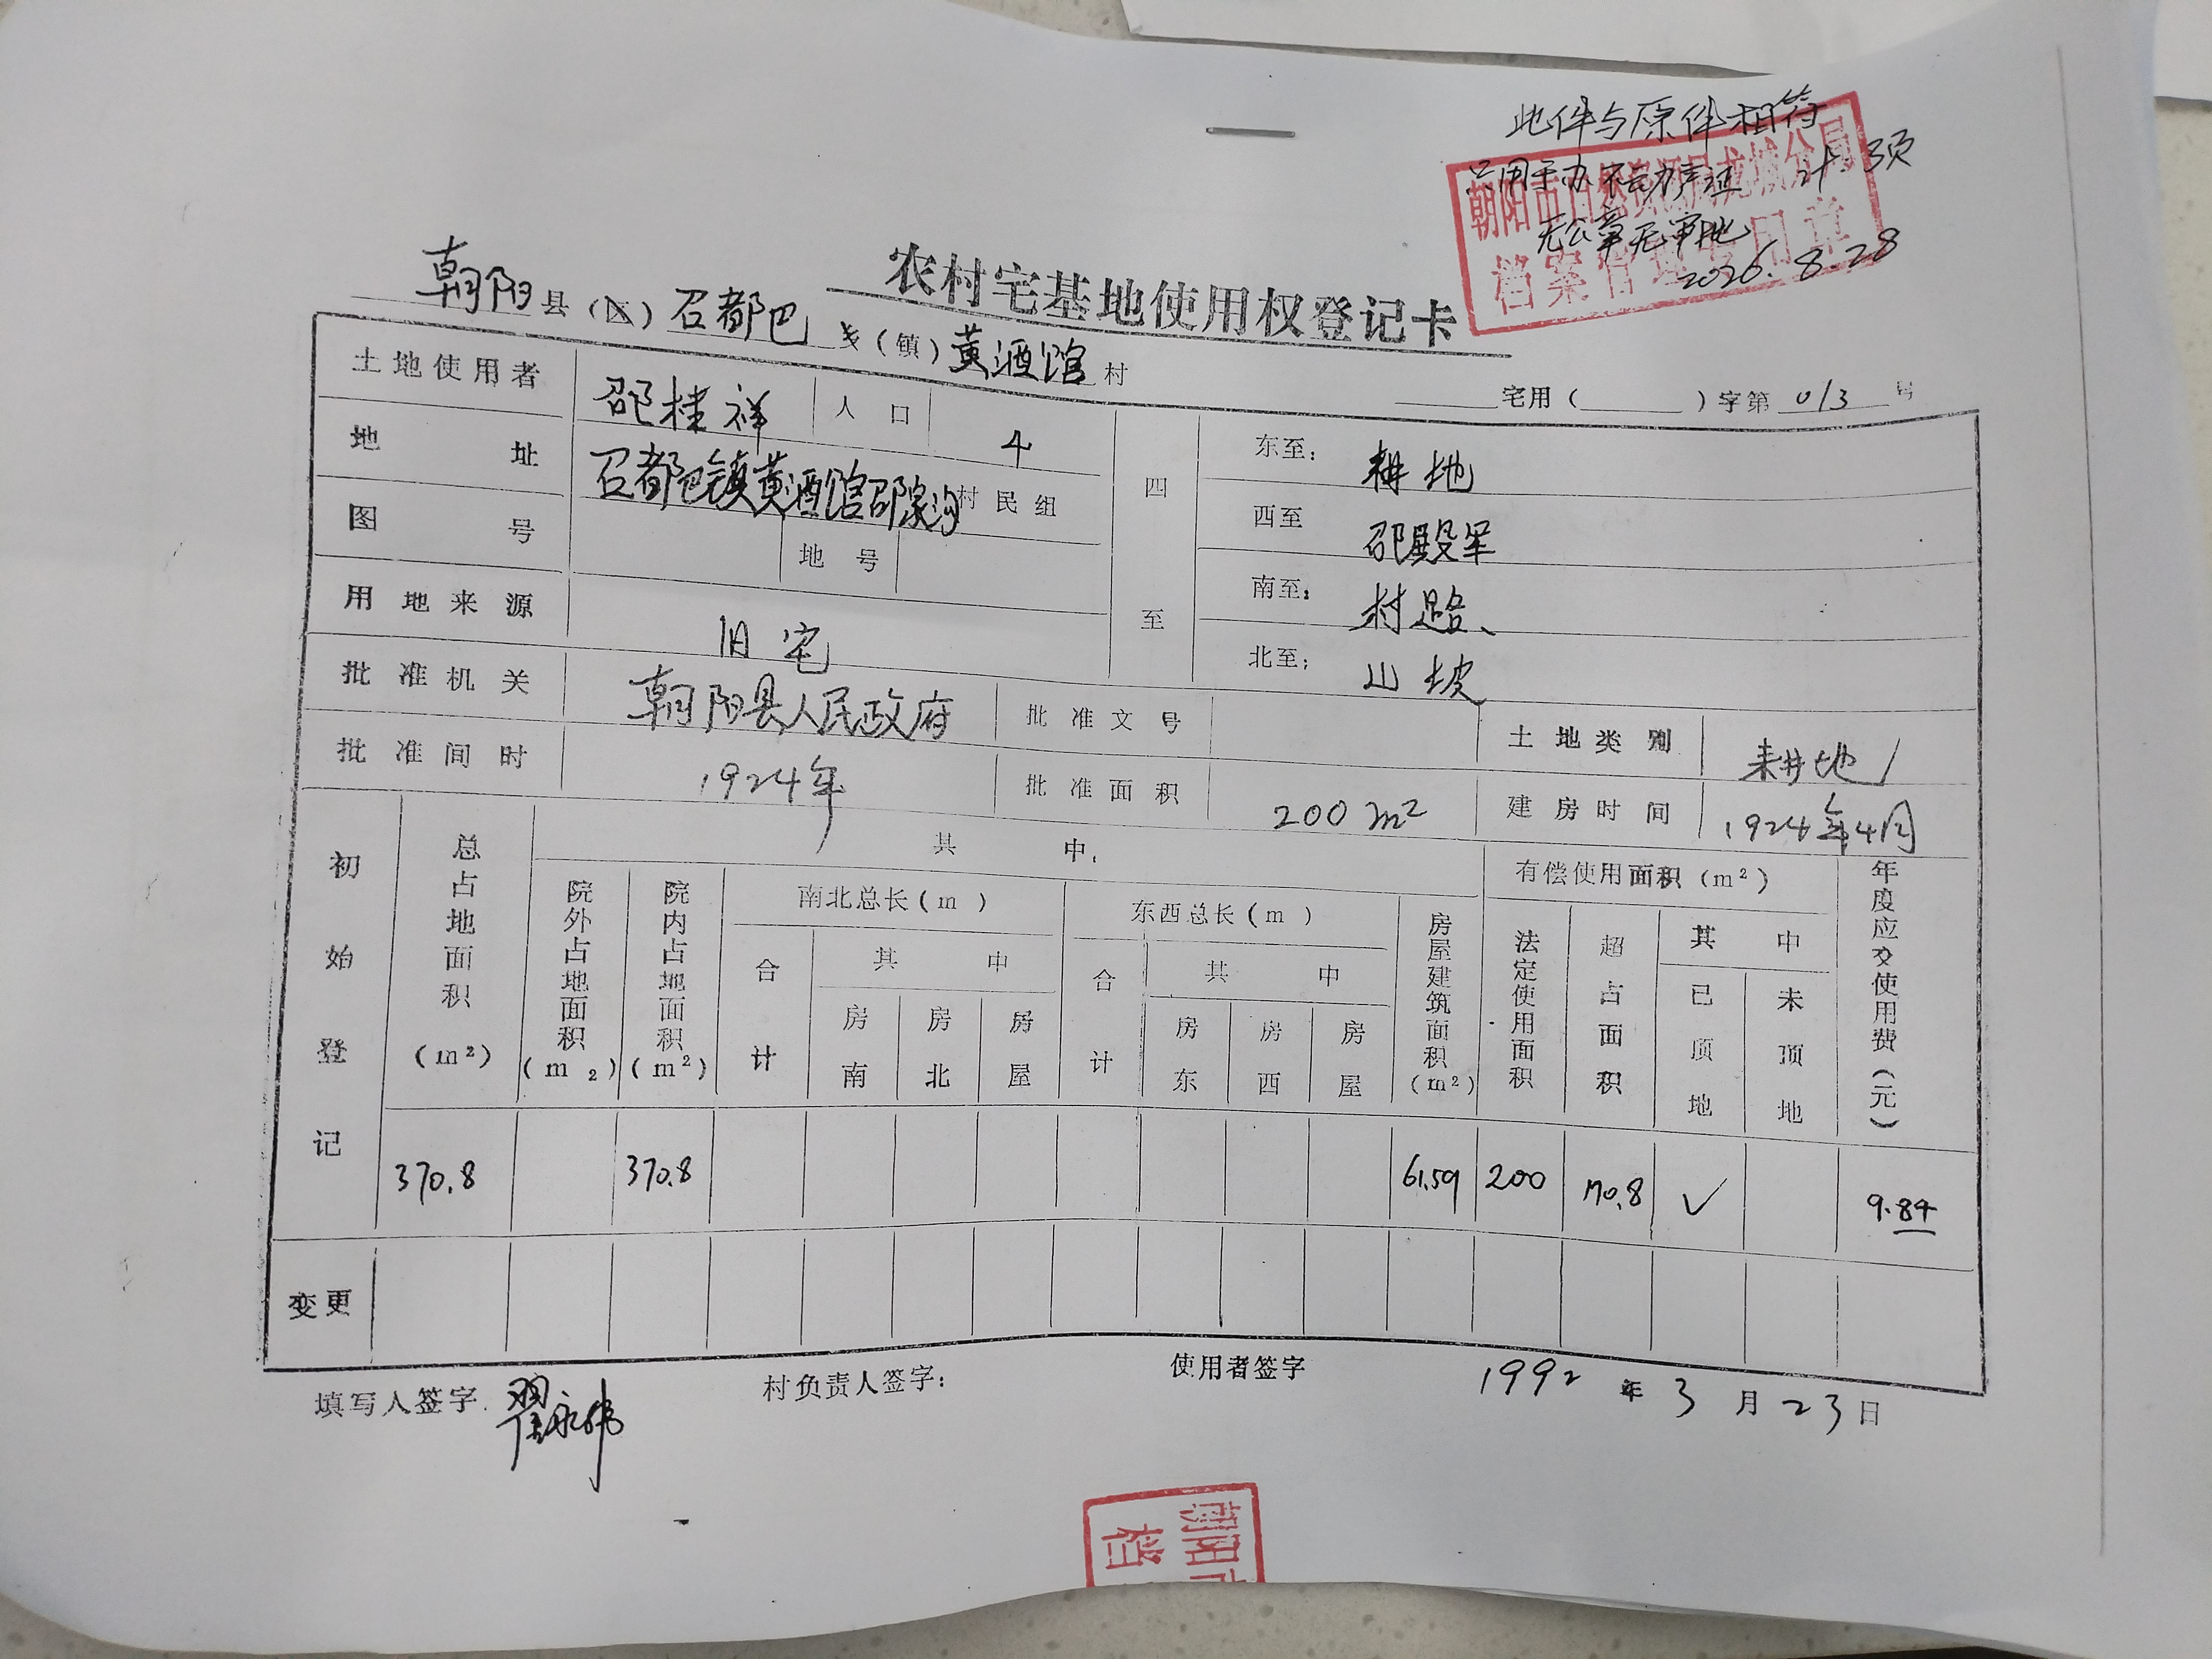 此件与原件相符
只用于办不动产证 计3页
无公章无审批
2026.8.28
朝阳市自然资源局龙城分局
档案管理专用章
农村宅基地使用权登记卡
朝阳县(区)召都巴乡(镇)黄酒馆村
宅用( )字第013号
土地使用者 邵桂祥 人口 4
地址 召都巴镇黄酒馆邵家沟村民组
图号 地号
用地来源 旧宅
四至
东至: 耕地
西至 邵殿军
南至: 村路、
北至: 山坡
批准机关 朝阳县人民政府 批准文号 土地类别 耕地
批准间时 1924年 批准面积 200m² 建房时间 1924年4月
初始登记
总占地面积(m²)
其中:
院外占地面积(m₂)
院内占地面积(m²)
南北总长(m)
合计 其中
房南 房北 房屋
东西总长(m)
合计 其中
房东 房西 房屋
房屋建筑面积(m²)
有偿使用面积(m²)
法定使用面积
超占面积
其中
已顶地 未顶地
年度应交使用费(元)
370.8 370.8 61.59 200 170.8 ✓ 9.84
变更
填写人签字 翟永伟 村负责人签字: 使用者签字 1992年3月23日
朝阳市
档